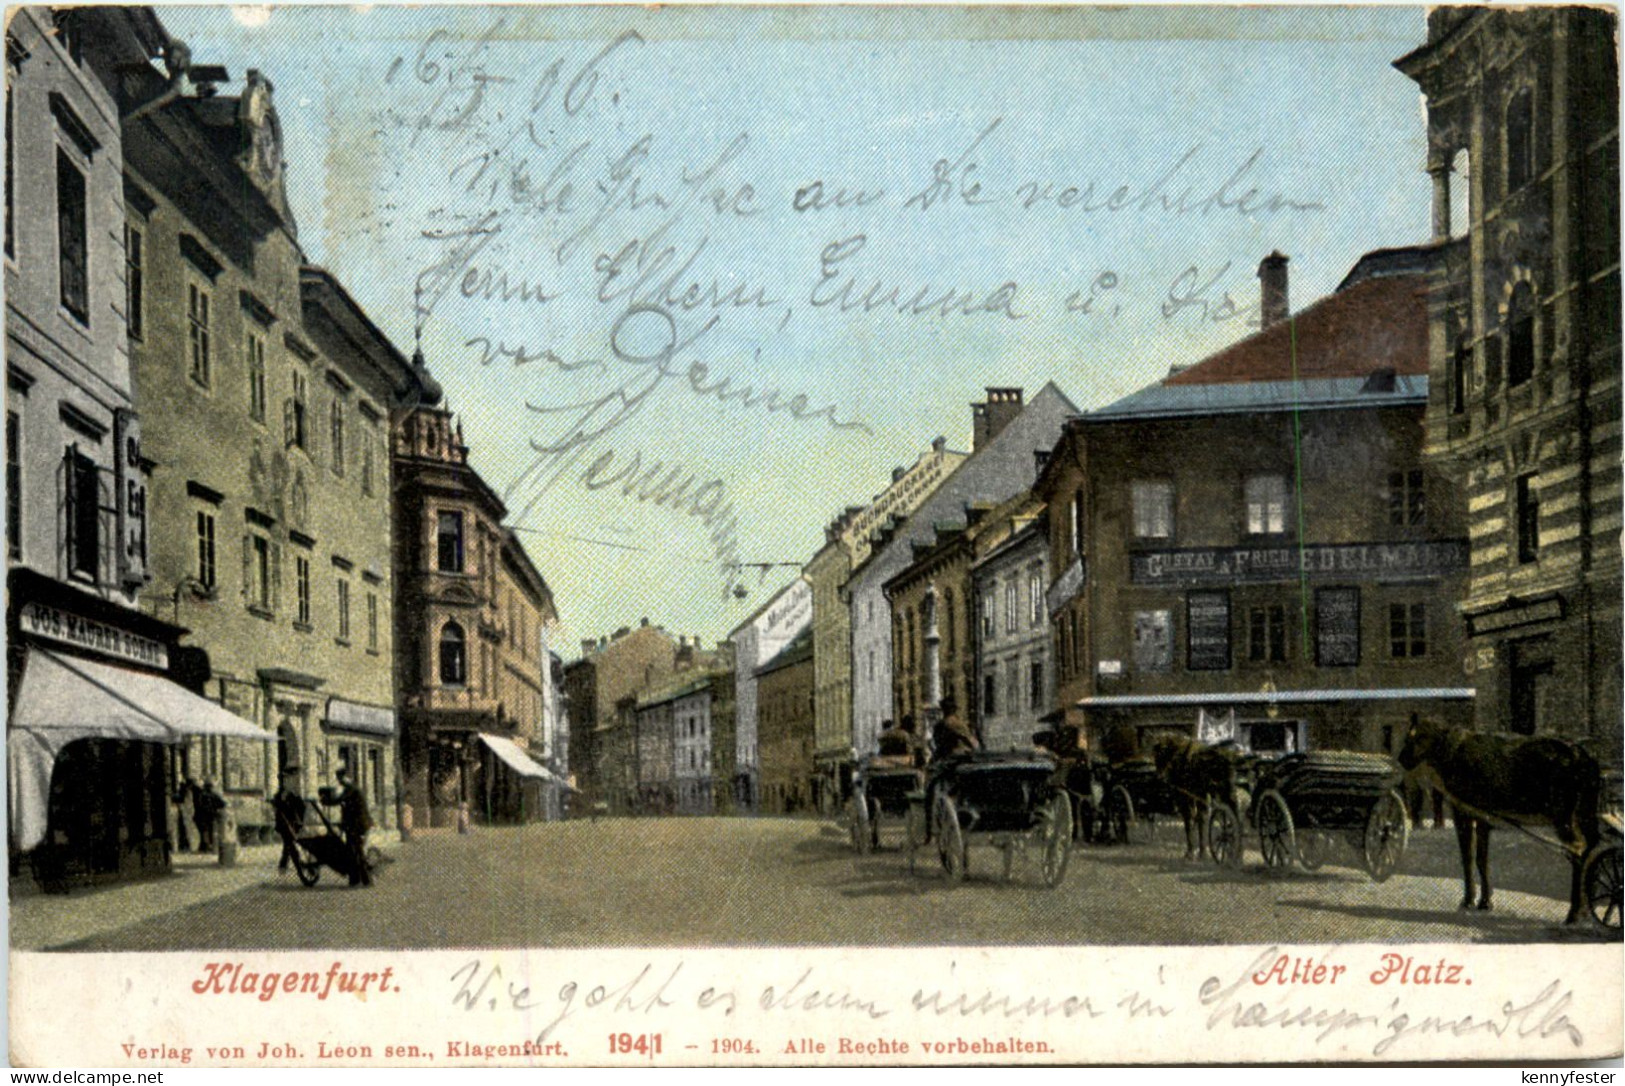 16/5. 06.
Viele Grüsse an Die verehrten
Herrn Eltern, Emma u. Dir
von Deinem
Hermann
BUCHDRUCKEREI
GUSTAV & FRIED. EDELMANN
JOS. MAURER SOHN
Klagenfurt.
Alter Platz.
Wie geht es denn immer in
Verlag von Joh. Leon sen., Klagenfurt. 194|1 – 1904. Alle Rechte vorbehalten.
kennyfester